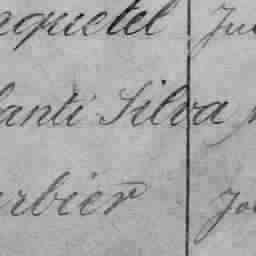 aquetel Ju
anti Silva
rbier Jo